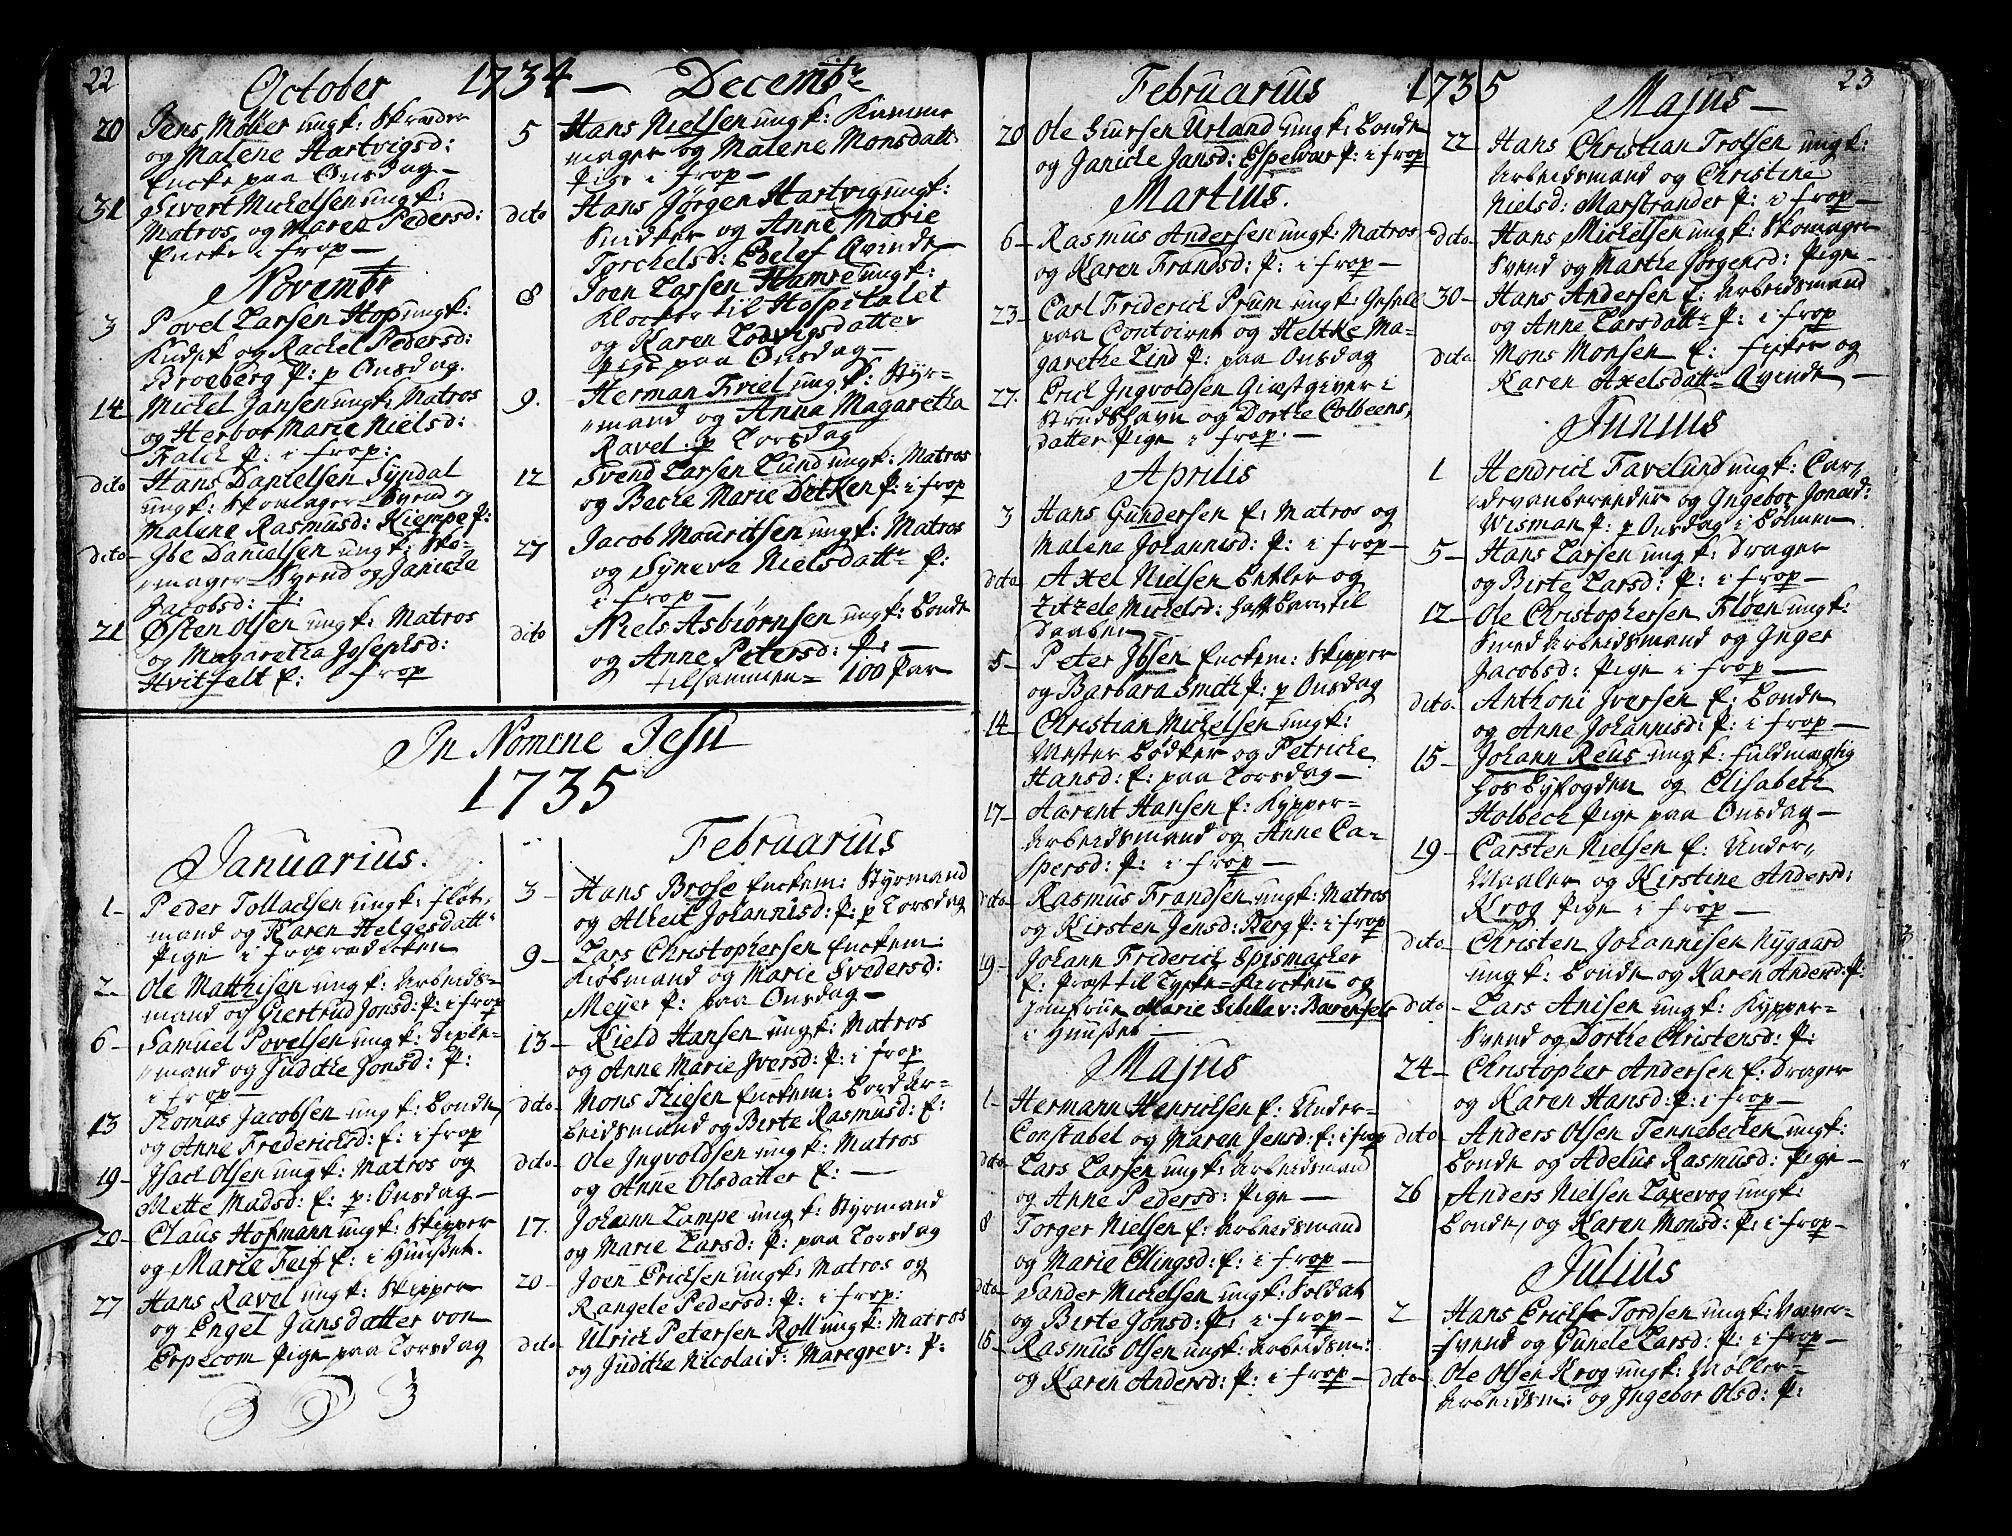 22
October 1734 — Decembr
20 Jens Møller ungk: Skræder
og Malene Hartvigsd:
Encke paa Onsdag —
31 Sivert Michelsen ungk:
Matros, og Maren Pedersd:
Encke i frop —
Novembr
3 Povel Larsen Hop ungk:
og Rachel Pedersd:
Broeberg P: p Onsdag.
14 Michel Jansen ungk: Matros
og Herbor Marie Nielsd:
Falck P: i frop:
dito Hans Danielsen Syndal
ungk: Skomager Svend og
Malene Rasmusd: Kiempe P:
dito Ibe Danielsen ungk: Sko-
mager Svend og Janicke
Jacobsd: P:
21 Østen Olsen ungk: Matros
og Magaretha Josephsd:
Hvitfelt E: i frop
5 Hans Nielsen ungk: Kamme
mager og Malene Monsdatt
Pige i frop —
dito Hans Jørgen Hartvig ungk:
Snidker og Anne Marie
Torchelsd: Edelef Qvinde —
8 Joen Larsen Hamre ungk:
Klocker til Hospitalet
og Karen Lodvigsdatter
Pige paa Onsdag —
9. Herman Friel ungk: Styr-
mand og Anna Magaretha
Ravel p Torsdag
12 Svend Larsen Lund ungk: Matros
og Beche Marie Detken P: i frop
27 Jacob Mouritsen ungk: Matros
og Syneva Nielsdatt: P:
i frop —
dito Niels Asbiørnsen ungk: Bonde
og Anne Petersd: P: —
tilsammen = 100 Par
In Nomine Jesu
1735
Januarius.
1 — Peder Tollacksen ungk: fløt,
mand og Karen Helgesdatt
Pige i froprædicken
2 — Ole Matthisen ungk: Arbeids-
mand og Giertrud Jonsd: P: i frop
6 — Samuel Povelsen ungk:
mand og Judithe Jonsd: P:
i frop —
13 Thomas Jacobsen ungk: Bonde,
og Anne Frederichsd: E: i frop
19 — Isach Olsen ungk: Matros og
Mette Madsd: E: p: Onsdag —
20 — Claus Hofmann ungk: Skipper
og Marie Feif E: i Huuset.
27 Hans Ravel ungk: Skipper
og Engel Jansdatter von
Erpecom Pige paa Torsdag
Februarius
3 — Hans Brose Enckem: Styrmand
og Alheit Johannisd: P: p Torsdag
9 — Lars Christophersen Enckem:
Kiøbmand og Marie Svedersd:
Meyer P: paa Onsdag —
13 — Kield Hansen ungk: Matros
og Anne Marie Iversd: P: i frop
dito — Mons Thiesen Enckem: Bord Ar-
beidsmand og Birte Rasmusd: E:
dito — Ole Ingvoldsen ungk: Matros
og Anne Olsdatter E: —
17. Johann Lampe ungk: Styrmand
og Marie Larsd: P: paa Torsdag
20 — Joen Erichsen ungk: Matros og
Rangele Pedersd: P: i frop:
dito — Ulrich Petersen Roll ungk: Matros
og Judithe Nicolaid: Maregrev: P:
Februarius 1735 Majus —
23
20 Ole Siursen Urland ungk: Bonde
og Janicke Jansd: Espevær P: i frop
Martius.
6 — Rasmus Andersen ungk: Matros
og Karen Frandsd: P: i frop —
23 — Carl Friderich Prum ungk: Gesell
paa Contoiret og Heltke Ma-
garethe Lind P: paa Onsdag
27. Erich Ingvoldsen Giæstgiver i
Strudshavn og Dorthe Colbeens,
datter Pige i frop. —
Aprilis
3 Hans Gundersen E: Matros og
Malene Johannisd: P: i frop —
dito Axel Nielsen Betler og
Zitzele Michelsd: haft Barn til
Daaben
5 — Peter Ibsen Enckem: Skipper
og Barbara Smith P: p Onsdag
14 — Christian Michelsen ungk:
Mester Bødker og Petriche
Hansd: E: paa Torsdag —
17 — Aarent Hansen E: Kypper-
Arbeidsmand og Anne Ca-
spersd: P: i frop —
dito — Rasmus Frandsen ungk: Matros
og Kirsten Jensd: Berg P: i frop
19 — Johann Friderich Spismacher
E: Præst til Tyske-Kircken og
Jomfrue Marie Sibilla v: Barenfels
i Huuset —
Majus
1 — Hermann Henrichsen E: Under-
Constabel og Maren Jensd: E: i frop
dito Lars Larsen ungk: Arbeidsmand
og Anne Pedersd: Pige —
8 Torger Nielsen E: Arbeidsmand
og Marie Ellingsd: E: i frop —
dito — Sander Michelsen ungk: Soldat
og Birte Jonsd: P: i frop —
15 — Rasmus Olsen ungk: Arbeidsm:
og Karen Andersd: P: i frop —
22 — Hans Christian Trolsen ungk:
Arbeidsmand og Christine
Nielsd: Marstrander P: i frop —
dito — Hans Michelsen ungk: Skomager
Svend og Marthe Jørgensd: Pige —
30 — Hans Andersen E: Arbeidsmand
og Anne Larsdatt: P: i frop
dito Mons Monsen E: Fisker og
Karen Axelsdatt: Qvinde —
Junius
1 Hendrich Favelund ungk: Car,
og Ingebor Jonasd:
Wisman P: p Onsdag i Bønnen
5 — Hans Larsen ungk: Drager
og Birte Larsd: P: i frop —
12 — Ole Christophersen Fløen ungk:
Smed Arbeidsmand og Inger
Jacobsd: Pige i frop —
dito — Anthoni Iversen E: Bonde
og Anne Johannisd: P: i frop —
15 — Johann Reus ungk: fuldmægtig
hos Byfogden og Elisabeth
Holbech Pige paa Onsdag —
19 — Carsten Nielsen E: Under,
Maaler og Kirstine Andersd:
Krog Pige i frop —
dito — Christen Johannisen Nygaard
ungk: Bonde og Karen Andersd: P:
dito — Lars Anisen ungk: Kypper-
Svend og Dorthe Christensd: P:
24 — Christopher Andersen E: Drager
og Karen Hansd: P: i frop —
dito — Anders Olsen Tennebecken ungk:
Bonde og Adelus Rasmusd: Pige —
26 Anders Nielsen Laxevog ungk:
Bonde, og Karen Monsd: P: i frop —
Julius
2 Hans Erichs Tordsen ungk: Væver-
Svend og Gunele Larsd: P: i frop —
dito — Ole Olsen Krog ungk: Møller-
Arbeidsm: og Ingebor Olsd: P: